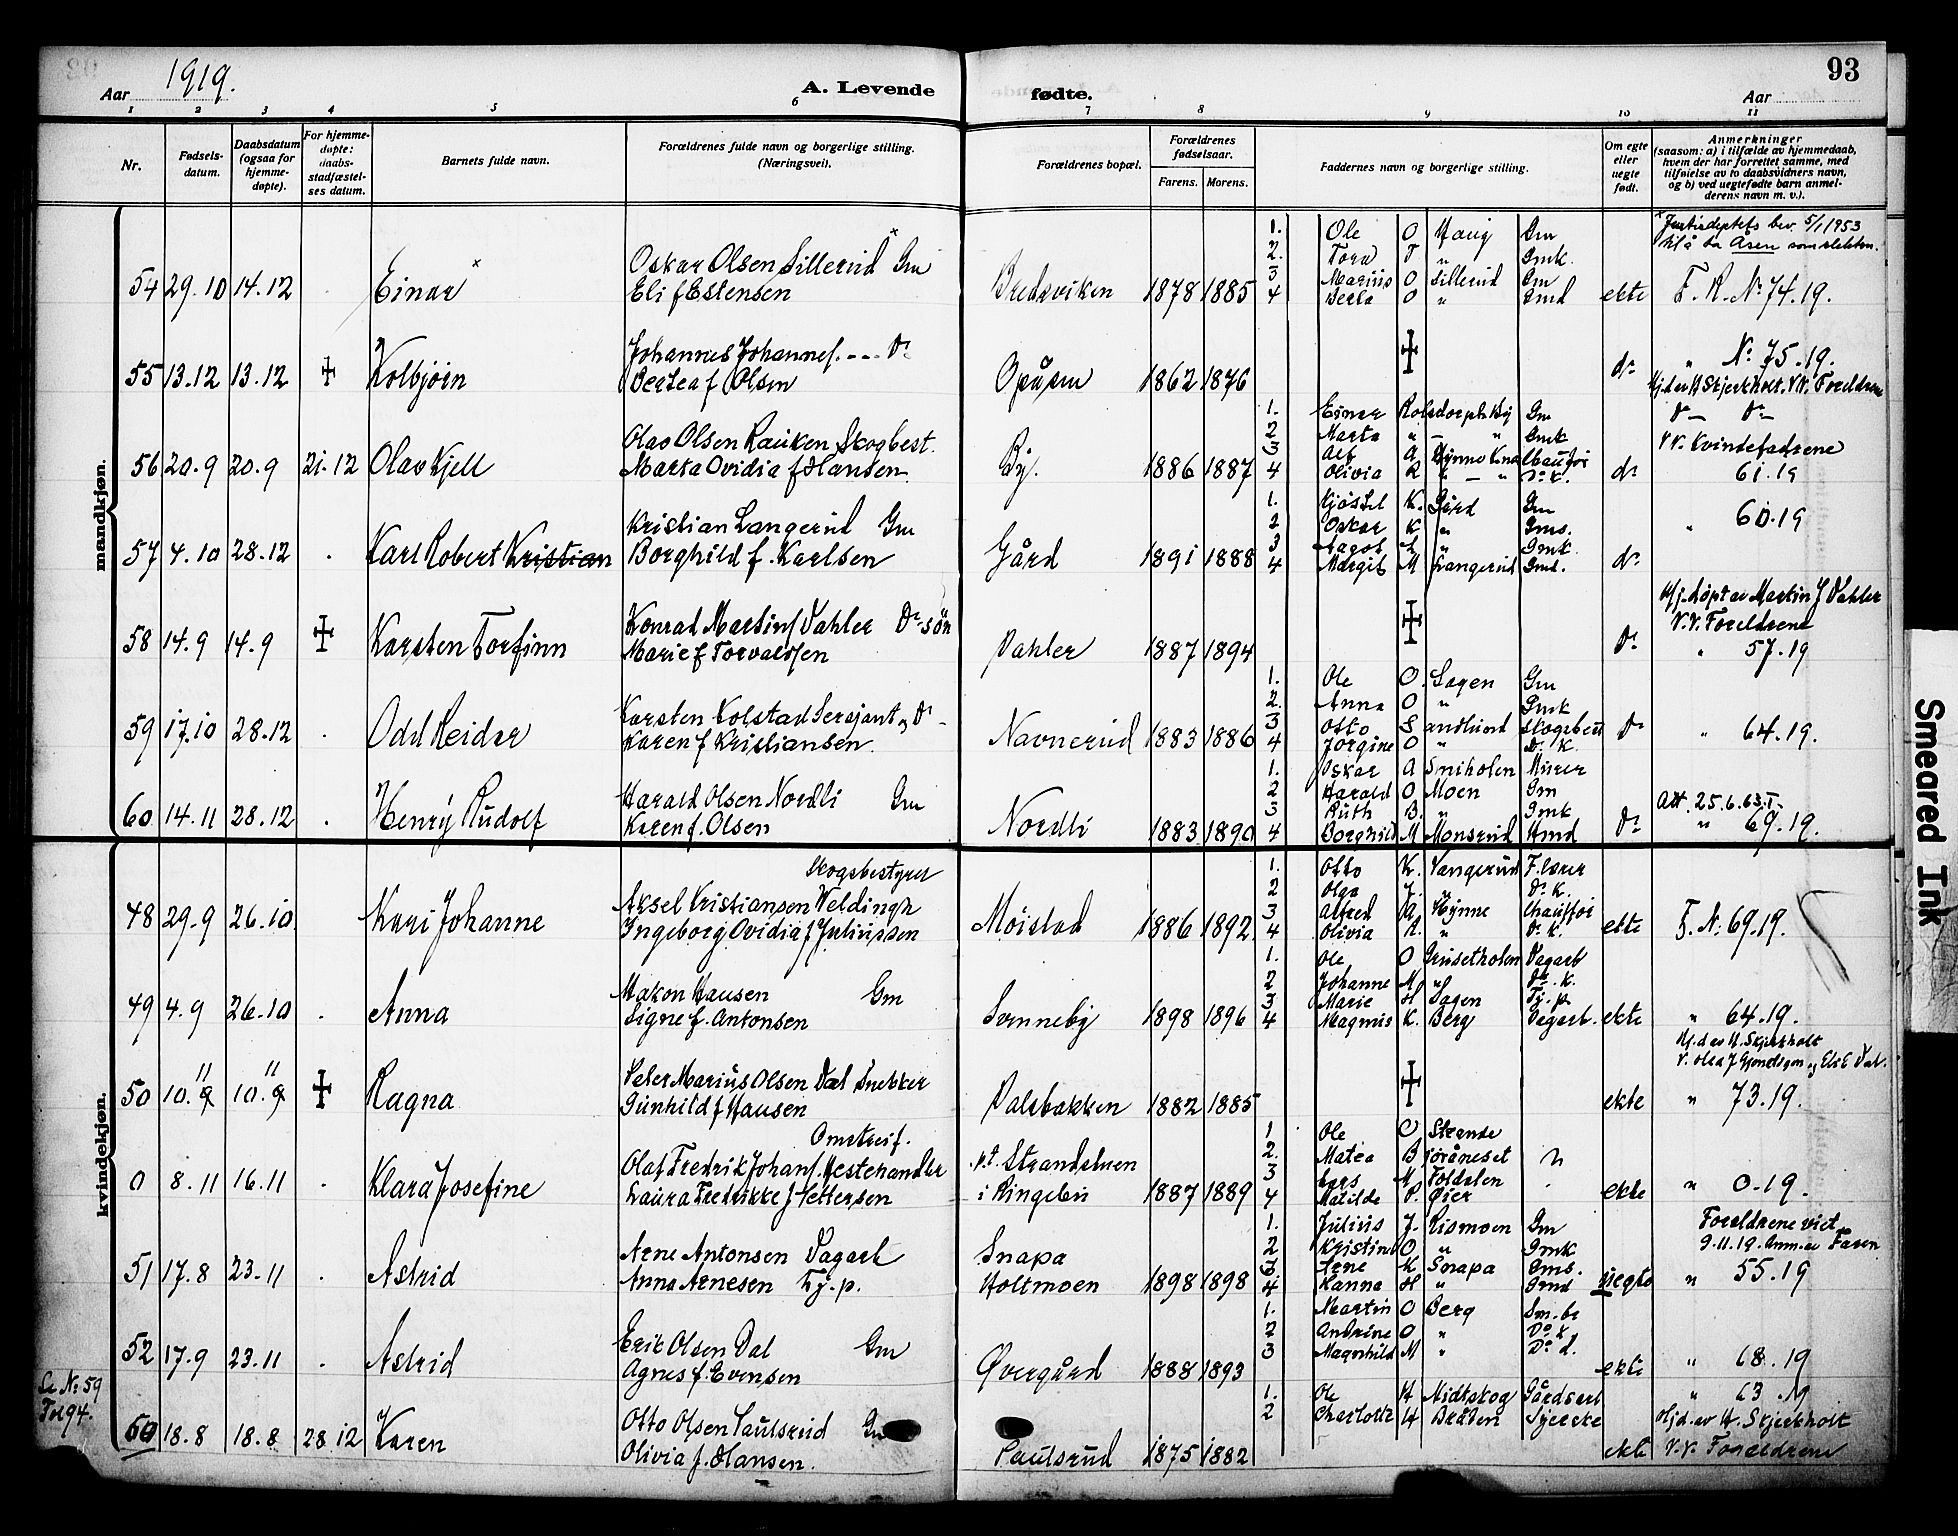 93
Aar 1919.
A. Levende
fødte.
Aar
1 2 3 4 5 6 7 8 9 10 11
Nr.
Fødsels-
datum.
Daabsdatum
(ogsaa for
hjemme-
døpte).
For hjemme-
døpte:
daabs-
stadfæstel-
ses datum.
Barnets fulde navn.
Forældrenes fulde navn og borgerlige stilling.
(Næringsvei).
Forældrenes bopæl.
Forældrenes
fødselsaar.
Farens. Morens.
Faddernes navn og borgerlige stilling.
Om egte
eller
uegte
født.
Anmerkninger
(saasom: a) i tilfælde av hjemmedaab,
hvem der har forrettet samme, med
tilføielse av to daabsvidners navn,
og b) ved uegtefødte barn anmel-
derens navn m. v.).
mandkjøn.
54 29.10 14.12 Einar
Oskar Olsen Sillerud Gm
Eli f Estensen
Bredsviken 1878 1885
1. Ole O Haug Gm
2. Tora T " Gmk.
3 Marius O Sillerud Gm
4 Berta O " Gmd
ekte
bev 5/1 1953
til å ta Åsen som slektsn.
F. R. Nº 74.19.
55 13.12 13.12 Kolbjørn
Johannes Johannes.
Bertea f Olsen
1862 1876
dº
" Nº 75.19.
Hj.d av H Skjerkholt. V.V. Foreldrene
56 20.9 20.9 21.12 Olav Kjell
Olav Olsen Rauken Skogbest.
Marta Ovidia f Hansen.
By. 1886 1887
1. Einar Gm
2 Marta " Gmk
3 Alf A Hynne
4 Olivia R " Dº k.
dº
V.V. Kvindefadrene
61.19
57 4.10 28.12 Karl Robert Kristian
Kristian Langerud Gm
Borghild f. Karlsen
Gård 1891 1888
1. Kjøstel K. Gård Gm
2 Oskar K " Gms.
3 Aagot " Gmk
4 Margit M Langerud Gmd.
dº
" 60.19
58 14.9 14.9 Karsten Torfinn
Konrad Martins. Dahler Dº søn
Marie f Torvaldsen
Dahler 1887 1894
Dº
Hj. døpt av Martin J Dahler
V.V. Foreldrene
" 57.19
59 17.10 28.12 Odd Reidar
Karsten Kolstad Sersjant
Karen f Kristiansen.
Navnerud 1883 1886
1. Ole O. Sagen Gm
2. Anna O " Gmk
3 Otto Sandlund Skogsbest
4 Jorgine O " Dº K.
Dº
" 64.19.
60 14.11 28.12 Henry Rudolf
Harald Olsen Nordli Gm
Karen f. Olsen
Nordli 1883 1890
1. Oskar A Sniholen Murer
2 Harald O Moen Gm
3 Ruth B. " Gmk
4 Borghild M Monsrud Hmd
Dº
Att. 25.6.63.
" 69.19.
kvindekjøn.
48 29.9 26.10 Kari Johanne
Skogsbestyrer
Aksel Kristiansen Veldingh
Ingeborg Ovidia f Juliussen
Moistad 1886 1892
1. Otto K. Vangerud F.lærer
2 Olga J. " Dº K.
3 Alfred A. Hynne Chauffør
4 Olivia R. " Dº K.
ekte
F. Nº 69.19.
49 4.9 26.10 Anna
Hakon Hansen Gm
Signe f. Antonsen
Svenneby 1898 1896
1. Ole O Grusetholen Dagarb
2 Johanne M " Dº K.
3 Marie H Sagen Tj.p
4 Magnus K. Berg Dagarb.
ekte
" 64.19.
50 10.9 11 10.9 11 Ragna
Peter Marius Olsen Dal Snekker
Gunhild f Hansen
Dalsbakken 1882 1885
ekte
Hj.d av H. Skjerkholt
" 73.19.
0 8.11 16.11 Klara Josefine
Omstreif.
Olaf Fredrik Johans. Hestehandler
Laura Fredrikke f Pettersen
p.t. Strandstuen
i Ringebu 1887 1889
1 Ole O Strande
2. Matea Bjøråneset
3 Lars M Foldalen
4 Matilde P. Øier
ekte
" 0.19.
51 17.8 23.11 Astrid
Arne Antonsen Dagarb
Anna Arnesen Tj.p.
Snapa
Holtmoen 1898 1898
1. Julius J. Rismoen Gm
2 Kristine O " Gmk
3 Arne K Snapa Gms.
4 Hanna H " Gmd
uegte
Foreldrene viet
9.11.19. Anm. av Faren
" 55.19
52 17.9 23.11 Astrid
Erik Olsen Dal Gm
Agnes f. Evensen
Øvergård 1888 1893
1. Martin O Berg Sm.br
2 Andrine O " Dº k
3 Magnhild M " Dº d.
ekte
" 68.19
Se Nº 59
Fol 94.
60 18.8 18.8 28.12 Karen
Otto Olsen Paulsrud Gm
Olivia f. Hansen.
Paulsrud 1875 1882
1. Ole H Midtskog Gårdsarb
2 Charlotte H Bråten Syerske
ekte
" 63.19
Hjd. av H. Skjerkholt
V.V. Foreldrene
Smeared Ink